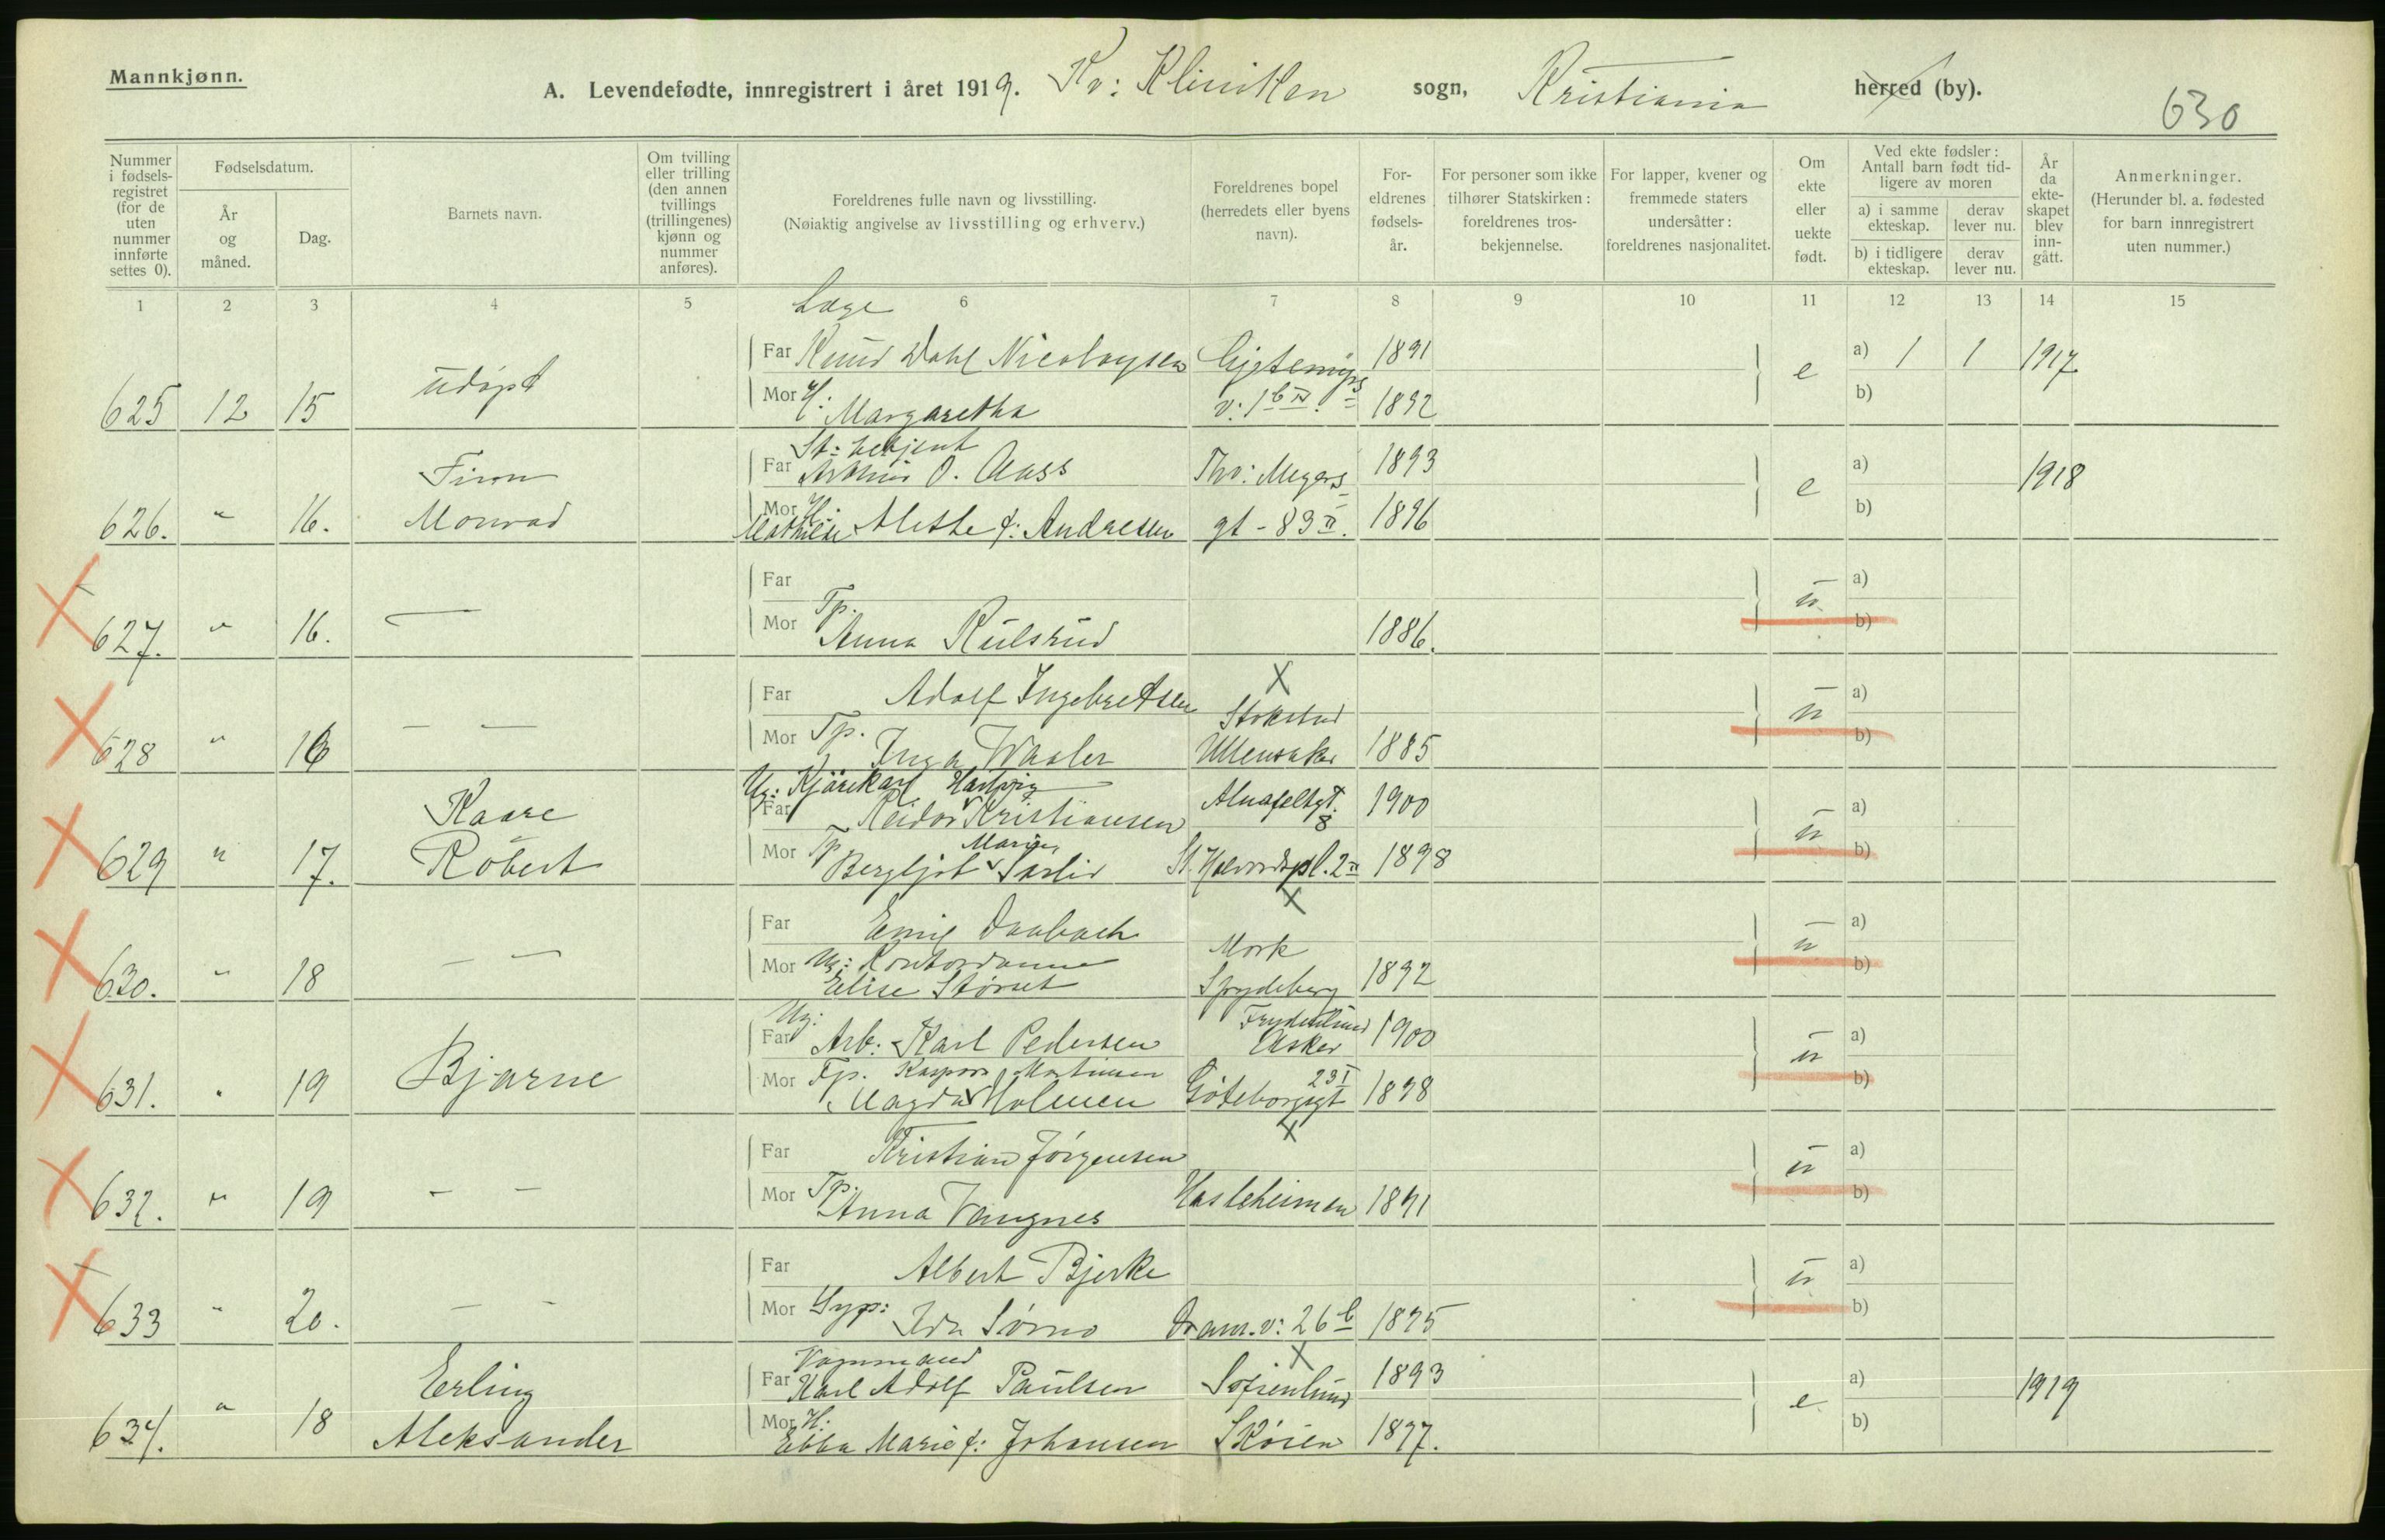 Mannkjønn.
A. Levendefødte, innregistrert i året 1919. Kv: Kliniken sogn, Kristiania herred (by).
630
Nummer i fødsels-registret (for de uten nummer innførte settes 0).
Fødselsdatum.
År og måned.
Dag.
Barnets navn.
Om tvilling eller trilling (den annen tvillings (trillingenes) kjønn og nummer anføres).
Foreldrenes fulle navn og livsstilling.
(Nøiaktig angivelse av livsstilling og erhverv.)
Foreldrenes bopel (herredets eller byens navn).
For-eldrenes fødsels-år.
For personer som ikke tilhører Statskirken: foreldrenes tros-bekjennelse.
For lapper, kvener og fremmede staters undersåtter: foreldrenes nasjonalitet.
Om ekte eller uekte født.
Ved ekte fødsler: Antall barn født tid-ligere av moren
a) i samme ekteskap.
derav lever nu.
b) i tidligere ekteskap.
derav lever nu.
År da ekte-skapet blev inn-gått.
Anmerkninger.
(Herunder bl. a. fødested for barn innregistrert uten nummer.)
1 2 3 4 5 6 7 8 9 10 11 12 13 14 15
Læge
Far Knud Dahl Nicolaysen 1891 a) 1 1 1917
625 12 15 udøpt e
Mor H: Margaretha v: 1 b IV. 1892 b)
St: betjent
Far Arthur O. Aass Thv: Meyers 1893 a) 1918
Finn
626. " 16. Monrad e
Mor H: Mathilde Alethe f: Andresen gt - 83 II. 1896 b)
Far a)
627. " 16. — u
Mor Tp. Anna Kulsrud 1886. b)
Far Adolf Ingebretsen X a)
628 " 16 — — Stokstad u
Mor Tp. Inga Waaler Ullensaker 1885 b)
Ug: Kjørekarl Hartvig
Far Reidar Kristiansen Alnafeltgt. 8 1900 a)
Kaare
629 " 17. Robert u
Marie
Mor Tp Bergljot Sarlid St. Halvardspl. 2 II 1898 b)
X
Far Emil Daabach a)
630. " 18 — — Mork u
Mor Ug: Kontordame
Elise Størset Spydeberg 1892 b)
Ug: Frydenlund
Far Arb: Karl Pedersen Asker 1900 a)
631. " 19 Bjarne u
Mor Fp. Kaspara Martinsen 23 I
Magda Holmen Göteborggt 1898 b)
X
Far Kristian Jörgensen a)
632. " 19 — — u
Mor Tp. Anna Vangnes Hasleheimen 1891 b)
Far Albert Bjerke a)
633 " 20. — — u
Mor Syp: Ida Sørmo Dram.v: 26 b 1895 b)
X
Vognmand
Far Karl Adolf Paulsen Sofienlund 1893 a) 1919
Erling
634. " 18 Aleksander e
Mor H: Ebba Marie f: Johansen Skøien 1897. b)